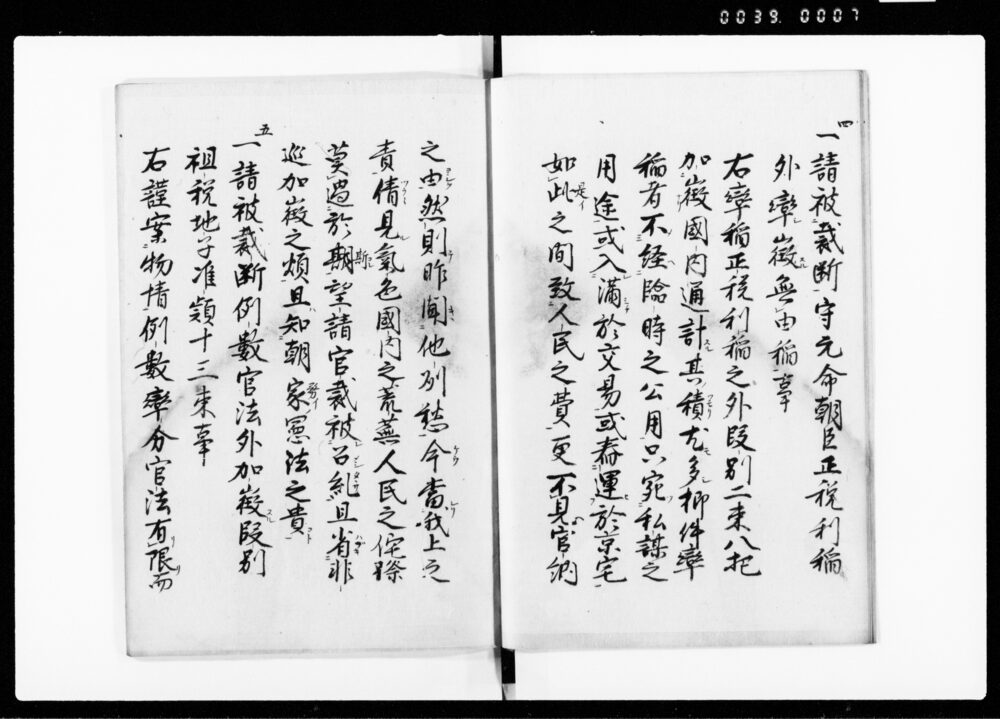 0039. 0007
四
一請被裁断守元命朝臣正税利稲
外率徴無由稲事
右率稲正税利稲之外段別二束八把
加徴國内通計其積尤多抑件率
稲者不経臨時之公用只宛私謀之
用途或入満於交易或舂運於京宅
如此之間致人民之費更不見官納
之由然則昨聞他州愁今當我上之
責倩見氣色國内之荒蕪人民之侘傺
莫過於斯期望請官裁被召糺且省非
巡加徴之煩且知朝家憲法之貴
五
一請被裁断例數官法外加徴段別
租税地子准穎十三束事
右謹案物情例數率分官法有限而